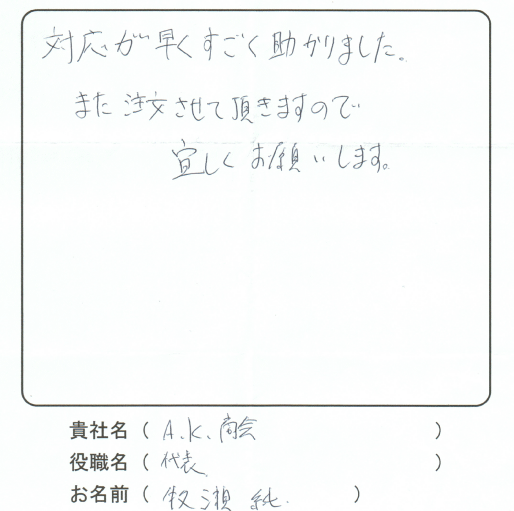 対応が早くすごく助かりました。
また注文させて頂きますので
宜しくお願いします。
貴社名 ( A.K.商会 )
役職名 ( 代表 )
お名前 ( 牧瀬 純 )